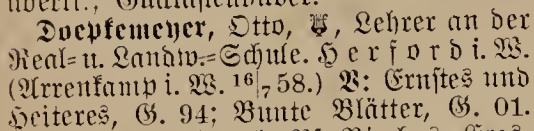 Doepkemeyer, Otto, Lehrer an der
Real- u. Landw.-Schule. Herford i. W.
(Arrenkamp i. W. 16/7 58.) V: Ernstes und
Heiteres, G. 94; Bunte Blätter, G. 01.